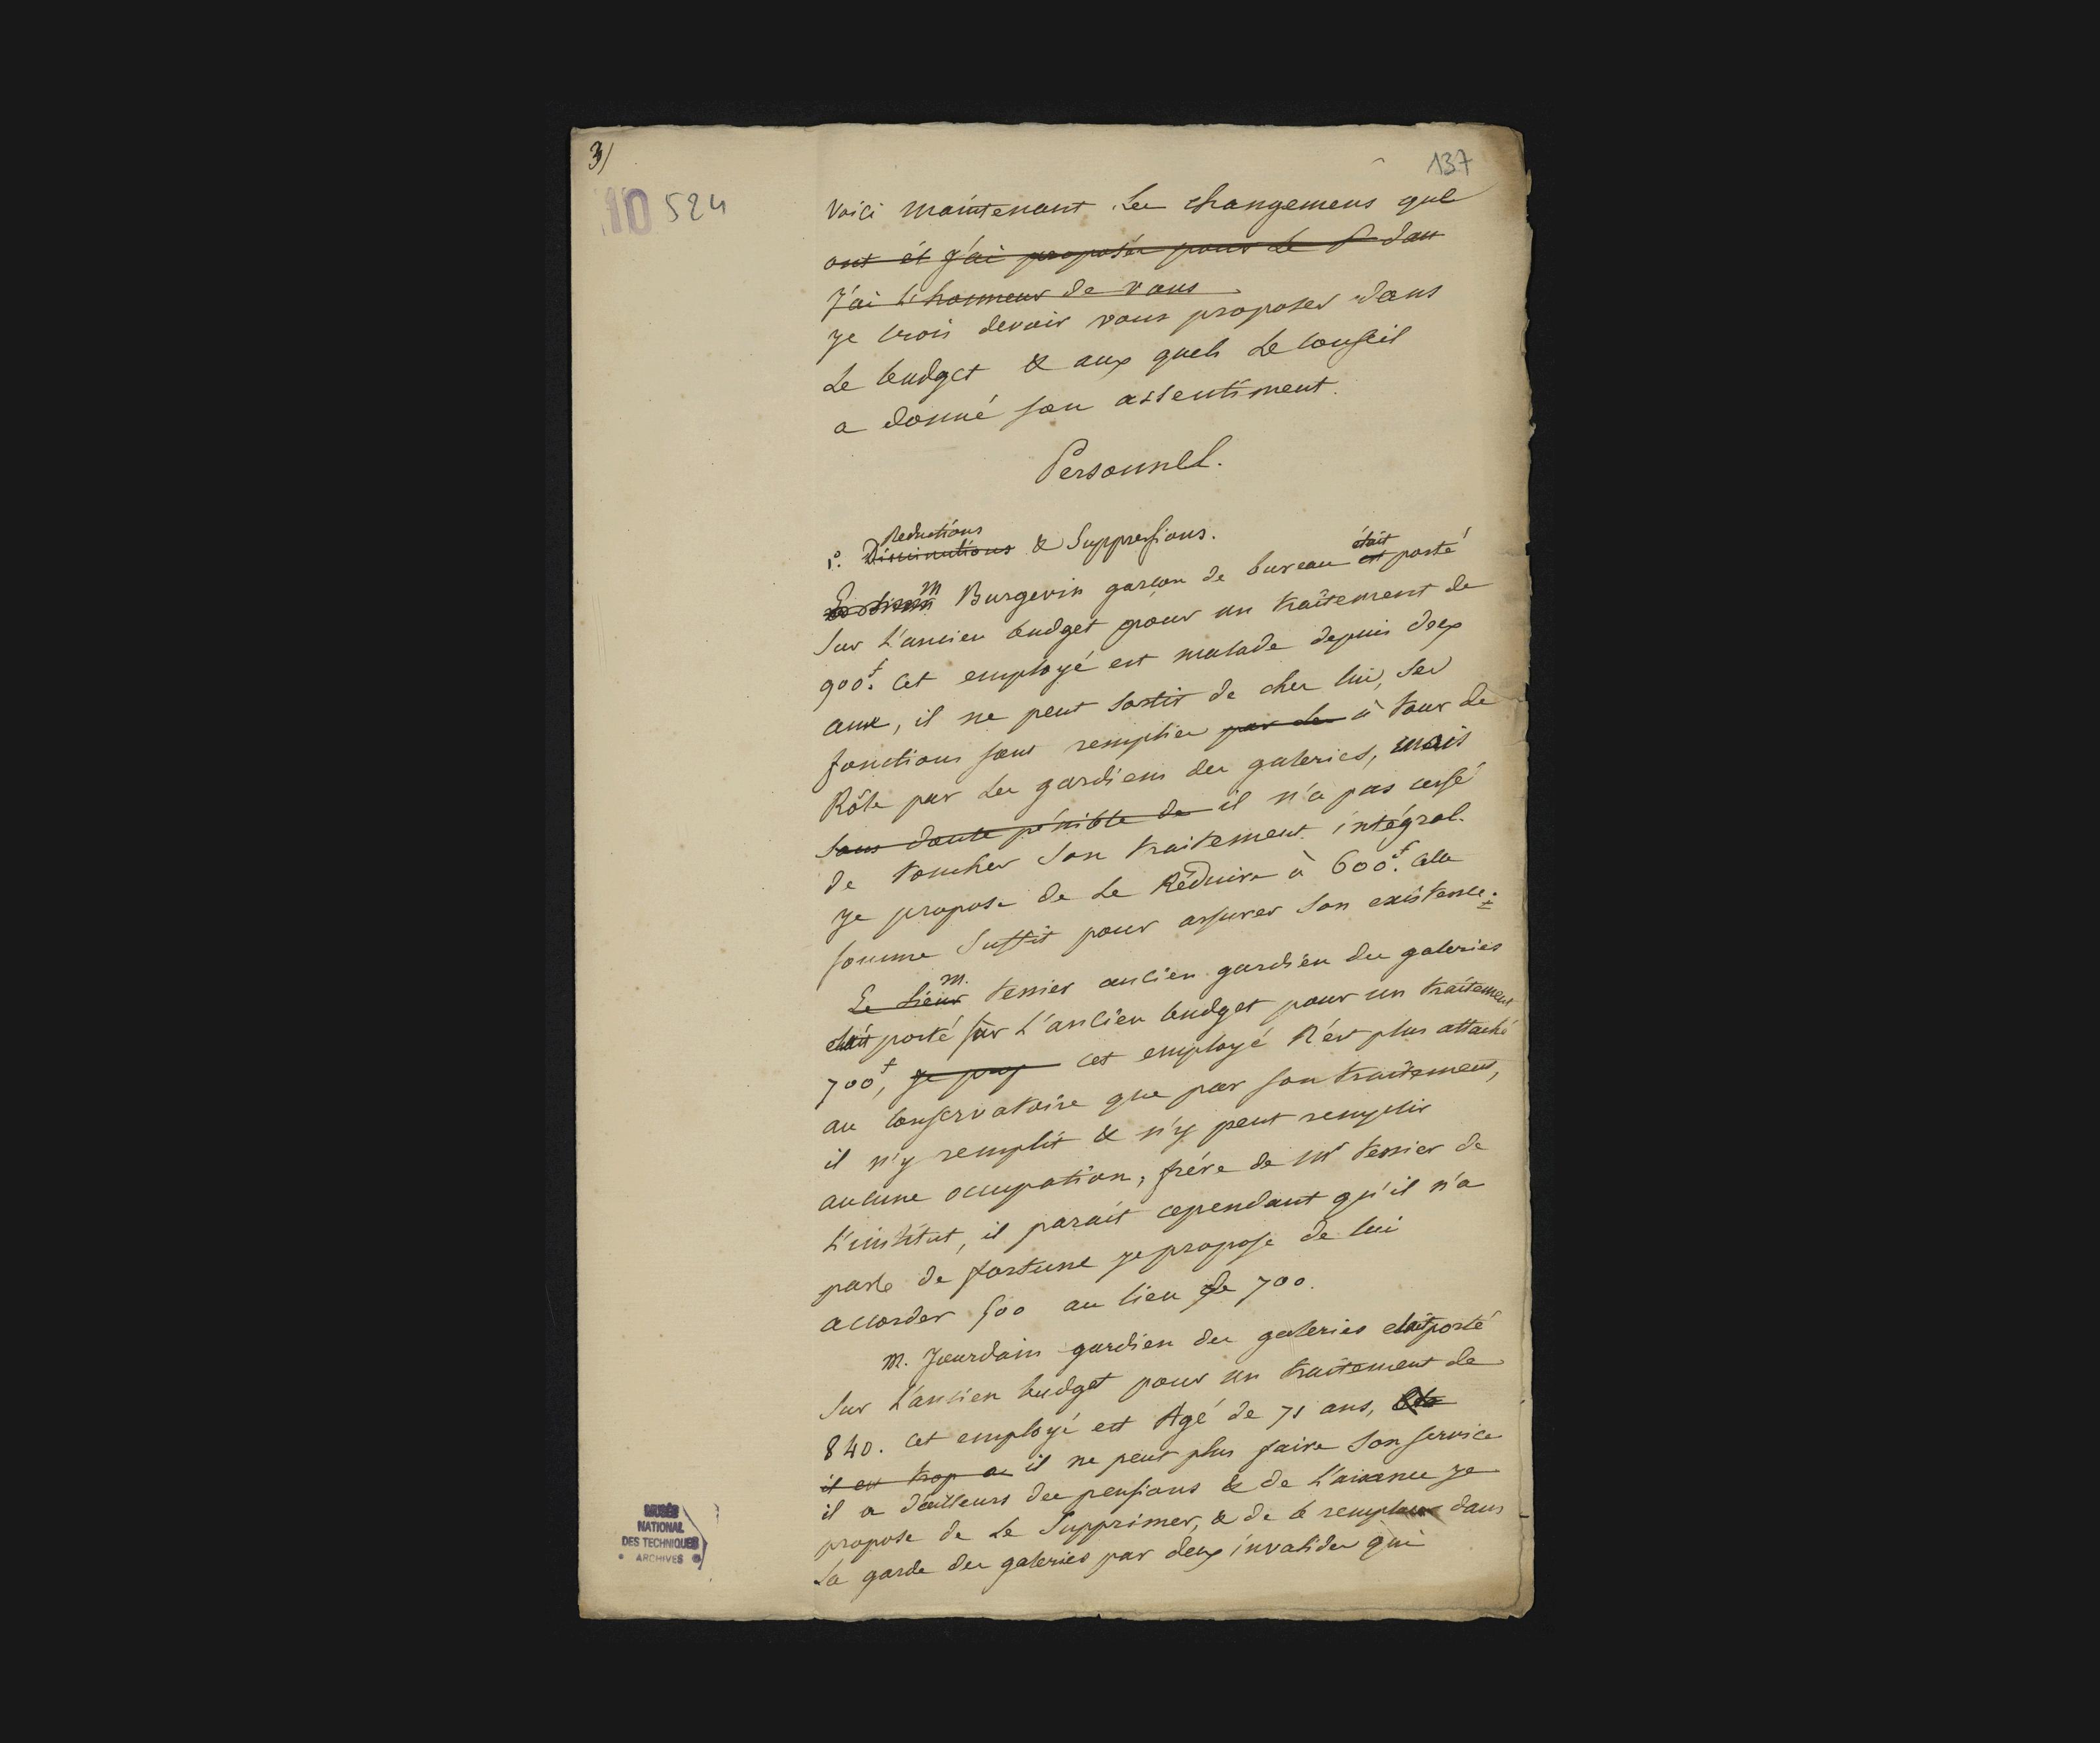 3/
137
10 524
Voici maintenant les changemens que
ont ét j'ai proposés pour le P dans
J'ai l'honneur de vous
je crois devoir vous proposer dans
le budget & aux quels le conseil
a donné son assentiment.
Personnel.
Reductions
1º. Diminutions & Suppressions.
était
M Burgevin garçon de bureau est porté
Sur l'ancien budget pour un traitement de
900f. Cet employé est malade depuis deux
ans, il ne peut sortir de chez lui, ses
fonctions sont remplies par les à tour de
Rôle par les gardiens des galeries, mais
sans doute pénible de il n'a pas cessé
de toucher son traitement intégral.
je propose de le Réduire à 600f. Cette
somme suffit pour assurer son existence.
m.
Le Sieur Tessier ancien gardien des galeries
était porté sur l'ancien budget pour un traitement
700f, je prop cet employé n'est plus attaché
au Conservatoire que par son traitement,
il n'y remplit & n'y peut remplir
aucune occupation, frère de Mr Tessier de
l'institut, il parait cependant qu'il n'a
pas de fortune je propose de lui
accorder 500 au lieu de 700.
M. Jourdain gardien des galeries était porté
Sur l'ancien budget pour un traitement de
840. Cet employé est Agé de 71 ans,
il est trop a il ne peut plus faire son service
il a d'ailleurs des pensions & de l'aisance je
propose de le Supprimer, & de le remplacer dans
la garde des galeries par deux invalides qui
MUSÉE
NATIONAL
DES TECHNIQUES
ARCHIVES